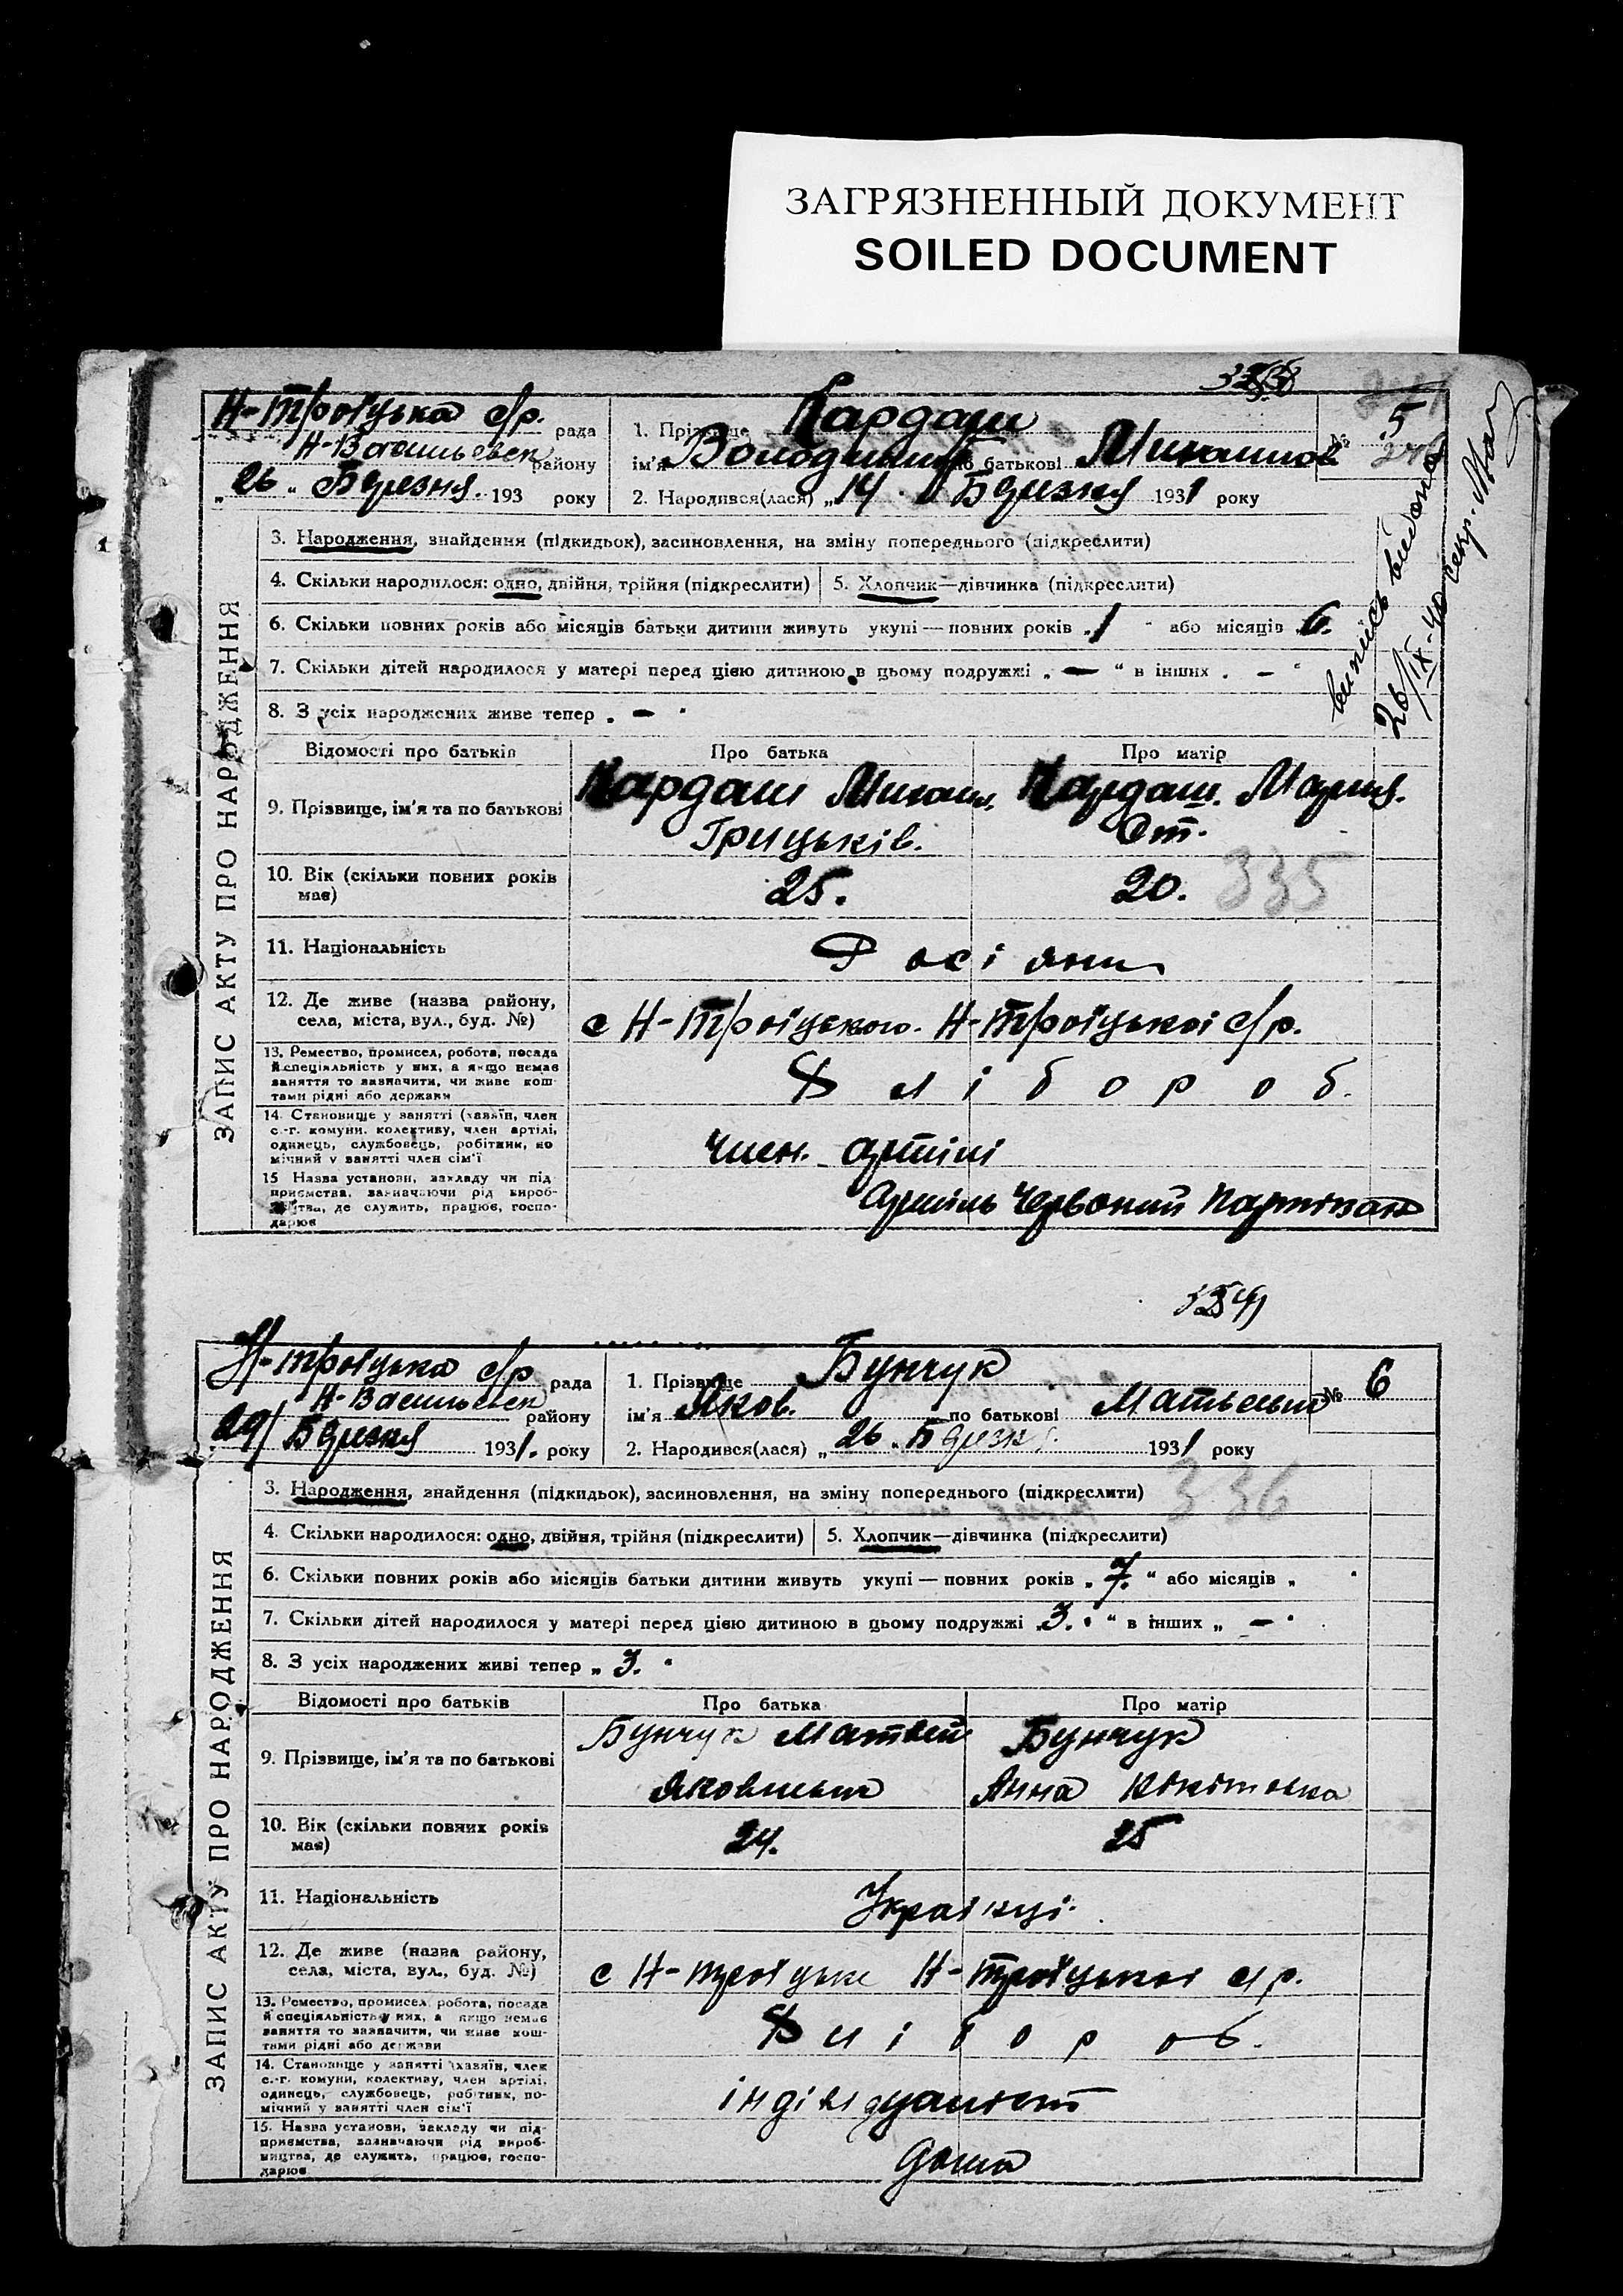 ЗАГРЯЗНЕННЫЙ ДОКУМЕНТ
SOILED DOCUMENT
Н-Троїцька с/р. рада
Н-Васильевск району
„26„ Березня. 193 року
1. Прізвище Кардаш
ім'я Володимир по батькові
2. Народився(лася) „14. Березня 1931 року
№ 5
випись видана
26/IX-40 секр.
ЗАПИС АКТУ ПРО НАРОДЖЕННЯ
3. Народження, знайдення (підкидьок), засиновлення, на зміну попереднього (підкреслити)
4. Скільки народилося: одно, двійня, трійня (підкреслити)
5. Хлопчик—дівчинка (підкреслити)
6. Скільки повних років або місяців батьки дитини живуть укупі — повних років „1 “ або місяців 6.
7. Скільки дітей народилося у матері перед цією дитиною в цьому подружжі „ — “ в інших „ — “
8. З усіх народжених живе тепер „ — “
Відомості про батьків
Про батька
Про матір
9. Прізвище, ім'я та по батькові
Кардаш Михаил.
Грицьків.
Кардаш. Мария.
10. Вік (скільки повних років
має)
25.
20. 335
11. Національність
Росіяни
12. Де живе (назва району,
села, міста, вул., буд. №)
с Н-Троїцького. Н-Троїцької с/р.
13. Ремество, промисел, робота, посада
й спеціяльність у них, а якщо немає
заняття то зазначити, чи живе кош-
тами рідні або держави
Хлібороб.
14. Становище у занятті (хазяїн, член
с.-г. комуни, колективу, член артілі,
одинець, службовець, робітник, по
мічний у занятті член сім'ї
член. артілі
15 Назва установи, закладу чи під
приємства, зазначаючи рід вироб-
ництва, де служить, працює, госпо-
дарює
Артіль Червоний Партизан
Н-Троїцька с/р рада
Н-Васильевск району
29/ Березня 1931. року
1. Прізвище Бунчук
ім'я Яков. по батькові
2. Народився(лася) „26„ Березня 1931 року
№ 6
ЗАПИС АКТУ ПРО НАРОДЖЕННЯ
3. Народження, знайдення (підкидьок), засиновлення, на зміну попереднього (підкреслити)
336
4. Скільки народилося: одно, двійня, трійня (підкреслити)
5. Хлопчик—дівчинка (підкреслити)
6. Скільки повних років або місяців батьки дитини живуть укупі — повних років „7.“ або місяців „ “
7. Скільки дітей народилося у матері перед цією дитиною в цьому подружжі „3.“ в інших „ — “
8. З усіх народжених живі тепер „3.“
Відомості про батьків
Про батька
Про матір
9. Прізвище, ім'я та по батькові
Бунчук Матвей
Бунчук
Анна
10. Вік (скільки повних років
має)
24.
25
11. Національність
Українці.
12. Де живе (назва району,
села, міста, вул., буд. №)
с Н-Троїцьке Н-Троїцької с/р.
13. Ремество, промисел, робота, посада
й спеціяльність у них, а якщо немає
заняття то зазначити, чи живе кош-
тами рідні або держави
Хлібороб.
14. Становище у занятті (хазяїн, член
с.-г. комуни, колективу, член артілі,
одинець, службовець, робітник, по-
мічний у занятті член сім'ї
індівідуаліст
15. Назва установи, закладу чи під-
приємства, зазначаючи рід вироб-
ництва, де служить, працює, госпо-
дарює
дома